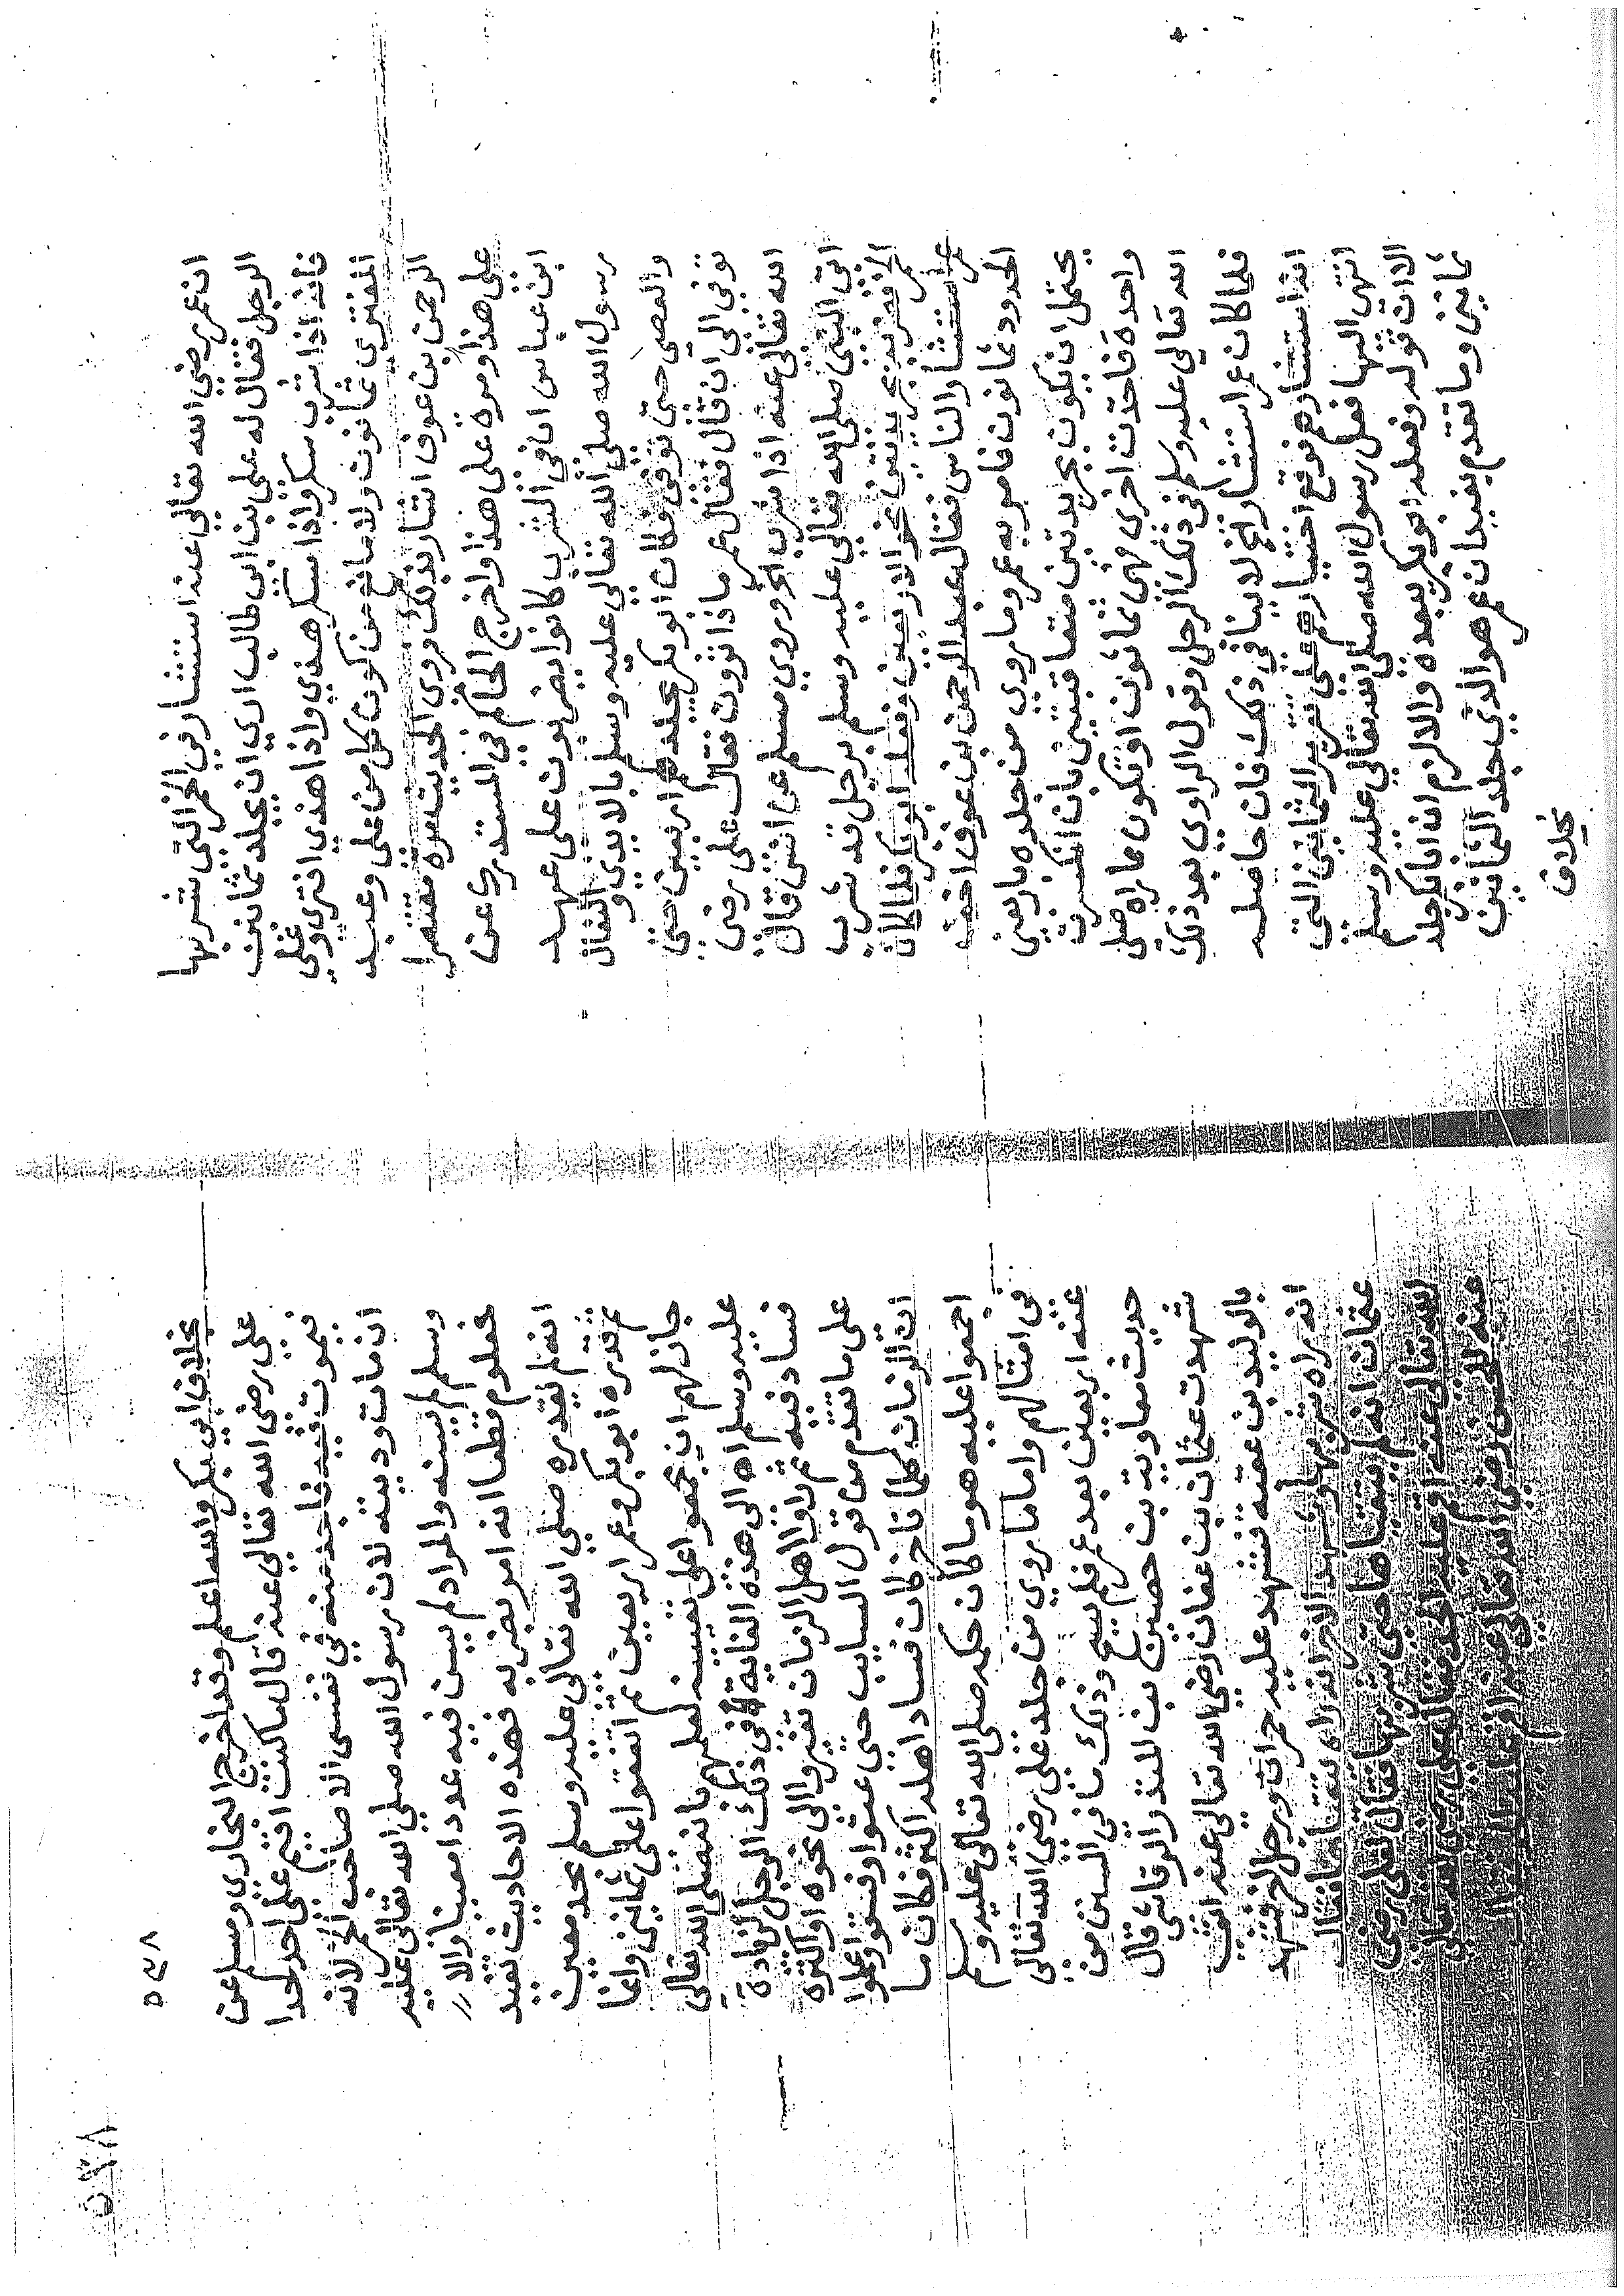 ان عمر رضي الله تعالى عنه استشار في الخمر التي يشربها
الرجل فقال له علي بن ابي طالب اري ان يجلد ثمانين
فانه اذا شرب سكر واذا سكر هذي واذا هذي افتري وعلى
المفتري ثمانون ولا مانع من كون كل من علي وعبد
الرحمن بن عوف اشار بذلك فروى الحديث مرة مقتصرا
على هذا ومرة على هذا واخرج الحاكم في المستدرك عن
ابن عباس ان في الشرب كانوا يضربون على عهد
رسول الله صلي الله تعالي عليه وسلم بالايدي والنعال
والعصي حتى توفي فكان ابو بكر يجلدهم اربعين حتى
توفي الى ان قال فقال عمر ماذا ترون فقال على رضى
الله تعالى عنه اذا شرب الخ وروي مسلم عن انس قال
اتى النبى صلى الله تعالي عليه وسلم برجل قد شرب
الخمر فضربه بجريدتين نحو الاربعين وفعله ابو بكر فلما كان
عمر استشار الناس فقال عبد الرحمن بن عوف اخف
الحدود ثمانون فامر به عمر وما روي من جلده باربعين
يحتمل ان يكون بجريدتين متعاقبتين بان انكسرت
واحدة فاخذت اخرى فهى ثمانون او تكون مما راه صلى
الله تعالي عليه وسلم في ذلك الرجل وقول الراوي بعد ذلك
فلما كان عمر استشار الخ لاينافي ذلك فان حاصله
انه استشارهم فوقع اختيارهم على تقرير الثمانين التى
انتهى اليها فعل رسول الله صلى الله تعالي عليه وسلم
الا ان قوله وفعله ابو بكر بعده والا لزم ان ابا بكر جلد
ثمانين وما تقدم يفيد ان عمر هو الذي جلد الثمانين
بخلاف
٥٣٨
٥٣٨
بخلاف ابي بكر والله اعلم وقد اخرج البخاري ومسلم عن
على رضى الله تعالي عنه قال ما كنت اقيم على احد حدا
فيموت فيه فاجد منه في نفسى الا صاحب الخمر لانه
ان مات وديته لان رسول الله صلي الله تعالى عليه
وسلم لم يسنه والمراد لم يبين فيه عددا معينا والا //
فمعلوم قطعا انه امر بضربه فهذه الاحاديث تفيد
انه لم يقدره صلى الله تعالى عليه وسلم بحد معين
ثم قدره ابو بكر وعمر اربعين ثم اتفقوا على ثمانين وانما
جاز لهم ان يجمعوا على تعيينه لعلمهم بانه صلى الله تعالى
عليه وسلم الى هذه الغاية في ذلك الرجل لزيادة
فساد فيه ثم راوا اهل الزمان تغيروا الى نحوه او اكثره
على ما تقدم من قول السايب حتى عتوا وفسقوا وعلموا
ان الزمان كلما تاخر كان فساد اهله اكثر فكان ما
اجمعوا عليه هو ما كان حكمه صلى الله تعالى عليه وسلم
في امثالهم واما ما روي من جلد على رضى الله تعالى
عنه اربعين بعد عمر فلم يصح وذلك ما في السنن من
حديث معاوية بن حصين بن المنذر الرقاشى قال
شهدت عثمان بن عفان رضي الله تعالى عنه اتى
بالوليد بن عقبة فشهد عليه حمران ورجل اخر فشهد
انه راه شربها وشهد الاخر انه راه يتقياها فقال
عثمان انه لم يتقياها حتى شربها فقال لعلي رضى
الله تعالى عنه اقم عليه الحد فقال على رضى الله تعالى
عنه للحسن رضى الله تعالى عنه اقم عليه الحد فقال